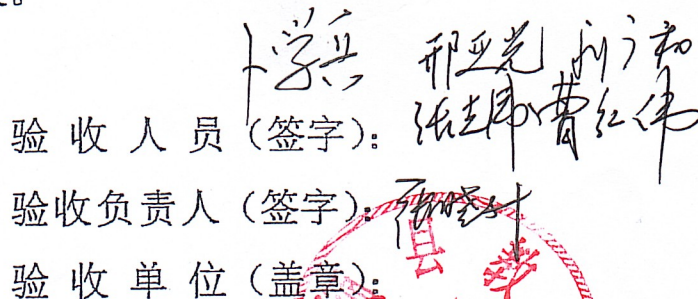 卜学兵 邢亚光 刘广和
验收人员（签字）：张志伟 曹红伟
验收负责人（签字）：张晓
验收单位（盖章）：
县